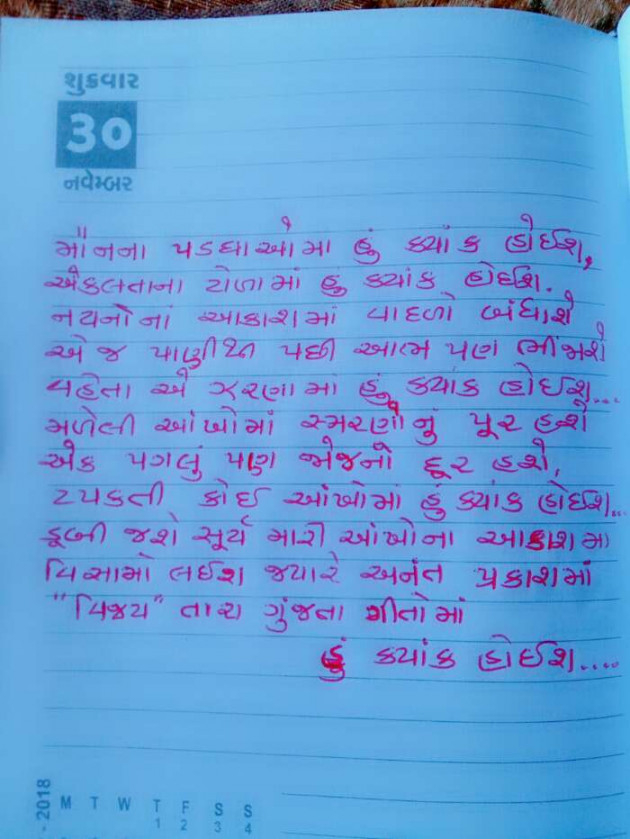 શુક્રવાર
30
નવેમ્બર
મૌનના પડઘાઓમા હું ક્યાંક હોઈશ,
એકલતાના ટોળામાં હું ક્યાંક હોઈશ.
નયનોનાં આકાશમાં વાદળો બંધાશે
એ જ પાણીથી પછી આત્મ પણ ભીંજાશે
વહેતા એ ઝરણામાં હું ક્યાંક હોઈશ...
મળેલી આંખોમાં સ્મરણોનું પૂર હશે
એક પગલું પણ જોજનો દૂર હશે,
ટપકતી કોઈ આંખોમાં હું ક્યાંક હોઈશ...
ડૂબી જશે સૂર્ય મારી આંખોના આકાશમાં
વિસામો લઈશ જ્યારે અનંત પ્રકાશમાં
"વિજય" તારા ગુંજતા ગીતોમાં
હું ક્યાંક હોઈશ....
2018
M T W T F S S
1 2 3 4